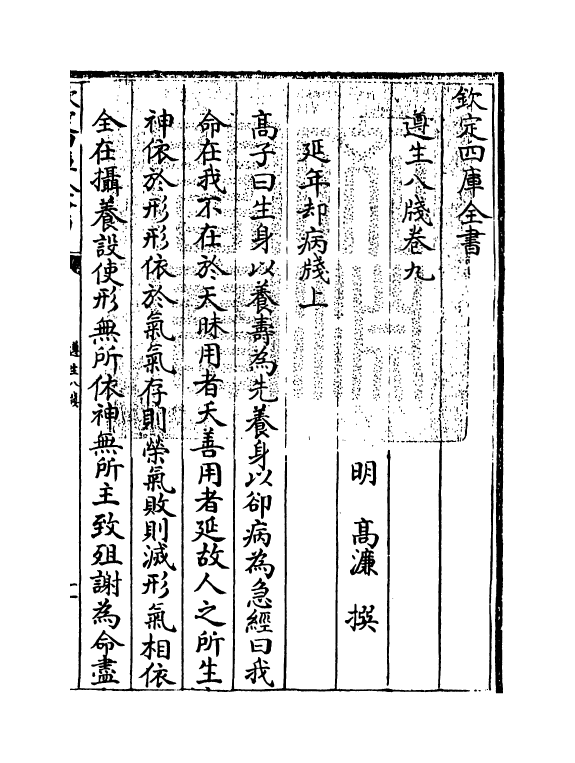 欽定四庫全書
遵生八牋卷九
明 髙濂 撰
延年却病牋上
髙子曰生身以養壽為先養身以卻病為急經曰我
命在我不在於天昧用者夭善用者延故人之所生
神依於形形依於氣氣存則榮氣敗則滅形氣相依
全在攝養設使形無所依神無所主致殂謝為命盡
遵生八牋